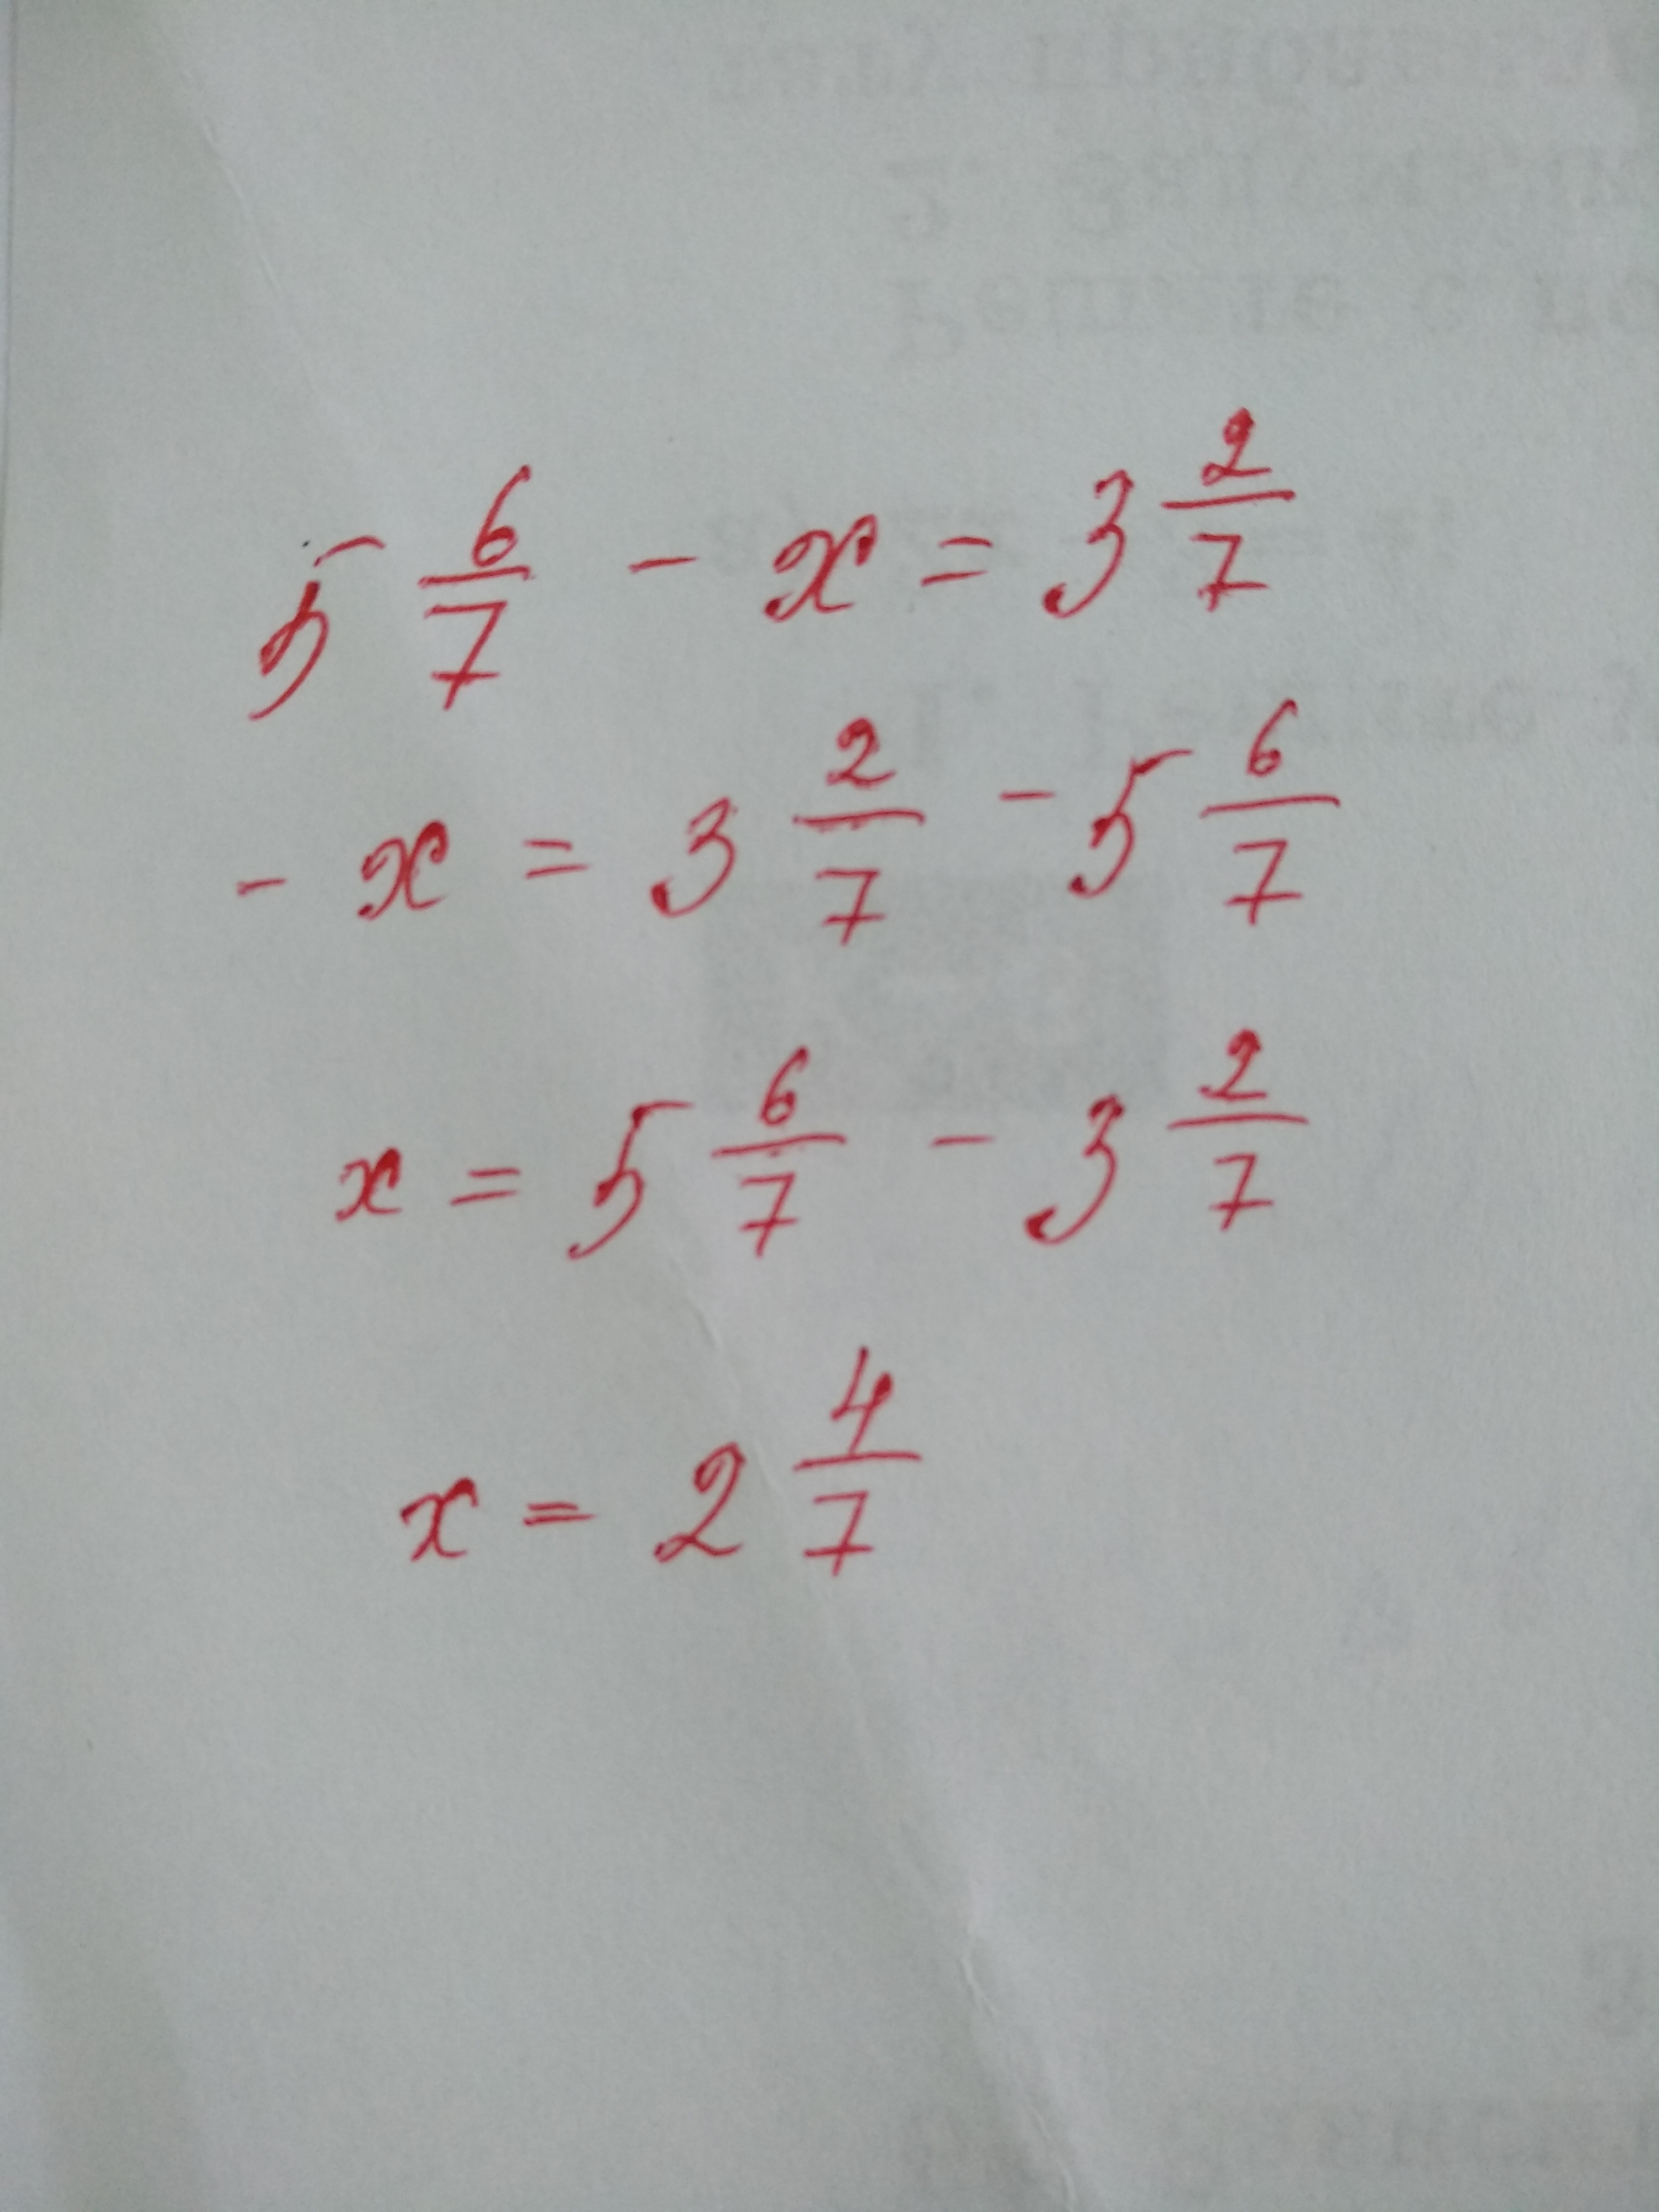 5 6/7 - x = 3 2/7
- x = 3 2/7 - 5 6/7
x = 5 6/7 - 3 2/7
x = 2 4/7